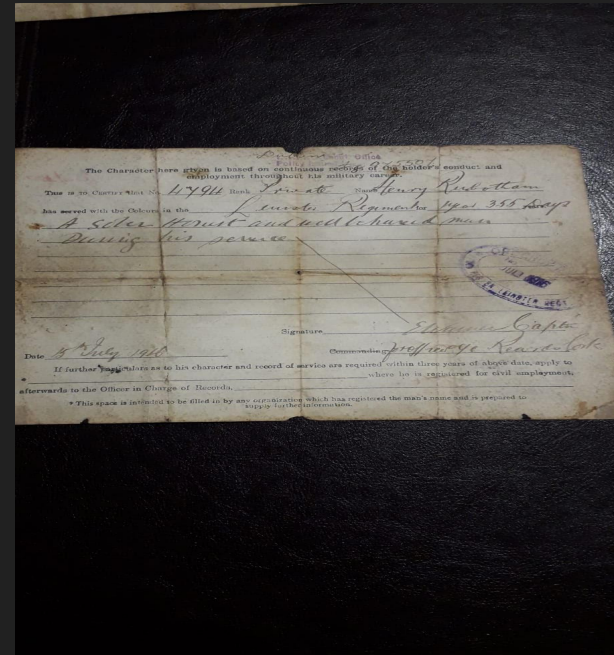 Office
The Character here given is based on continuous records of the holder's conduct and
employment throughout his military career.
This is to Certify that No. 4794 Rank Private Name Henry
has served with the Colours in the Leinster Regiment for 1 year 355 Days
A Sober Honest and well behaved man
During his service
Signature Capt
Date 5th July 1916 Commanding
If further particulars as to his character and record of service are required within three years of above date, apply to
* where he is registered for civil employment,
afterwards to the Officer in Charge of Records,
* This space is intended to be filled in by any organization which has registered the man's name and is prepared to
supply further information.